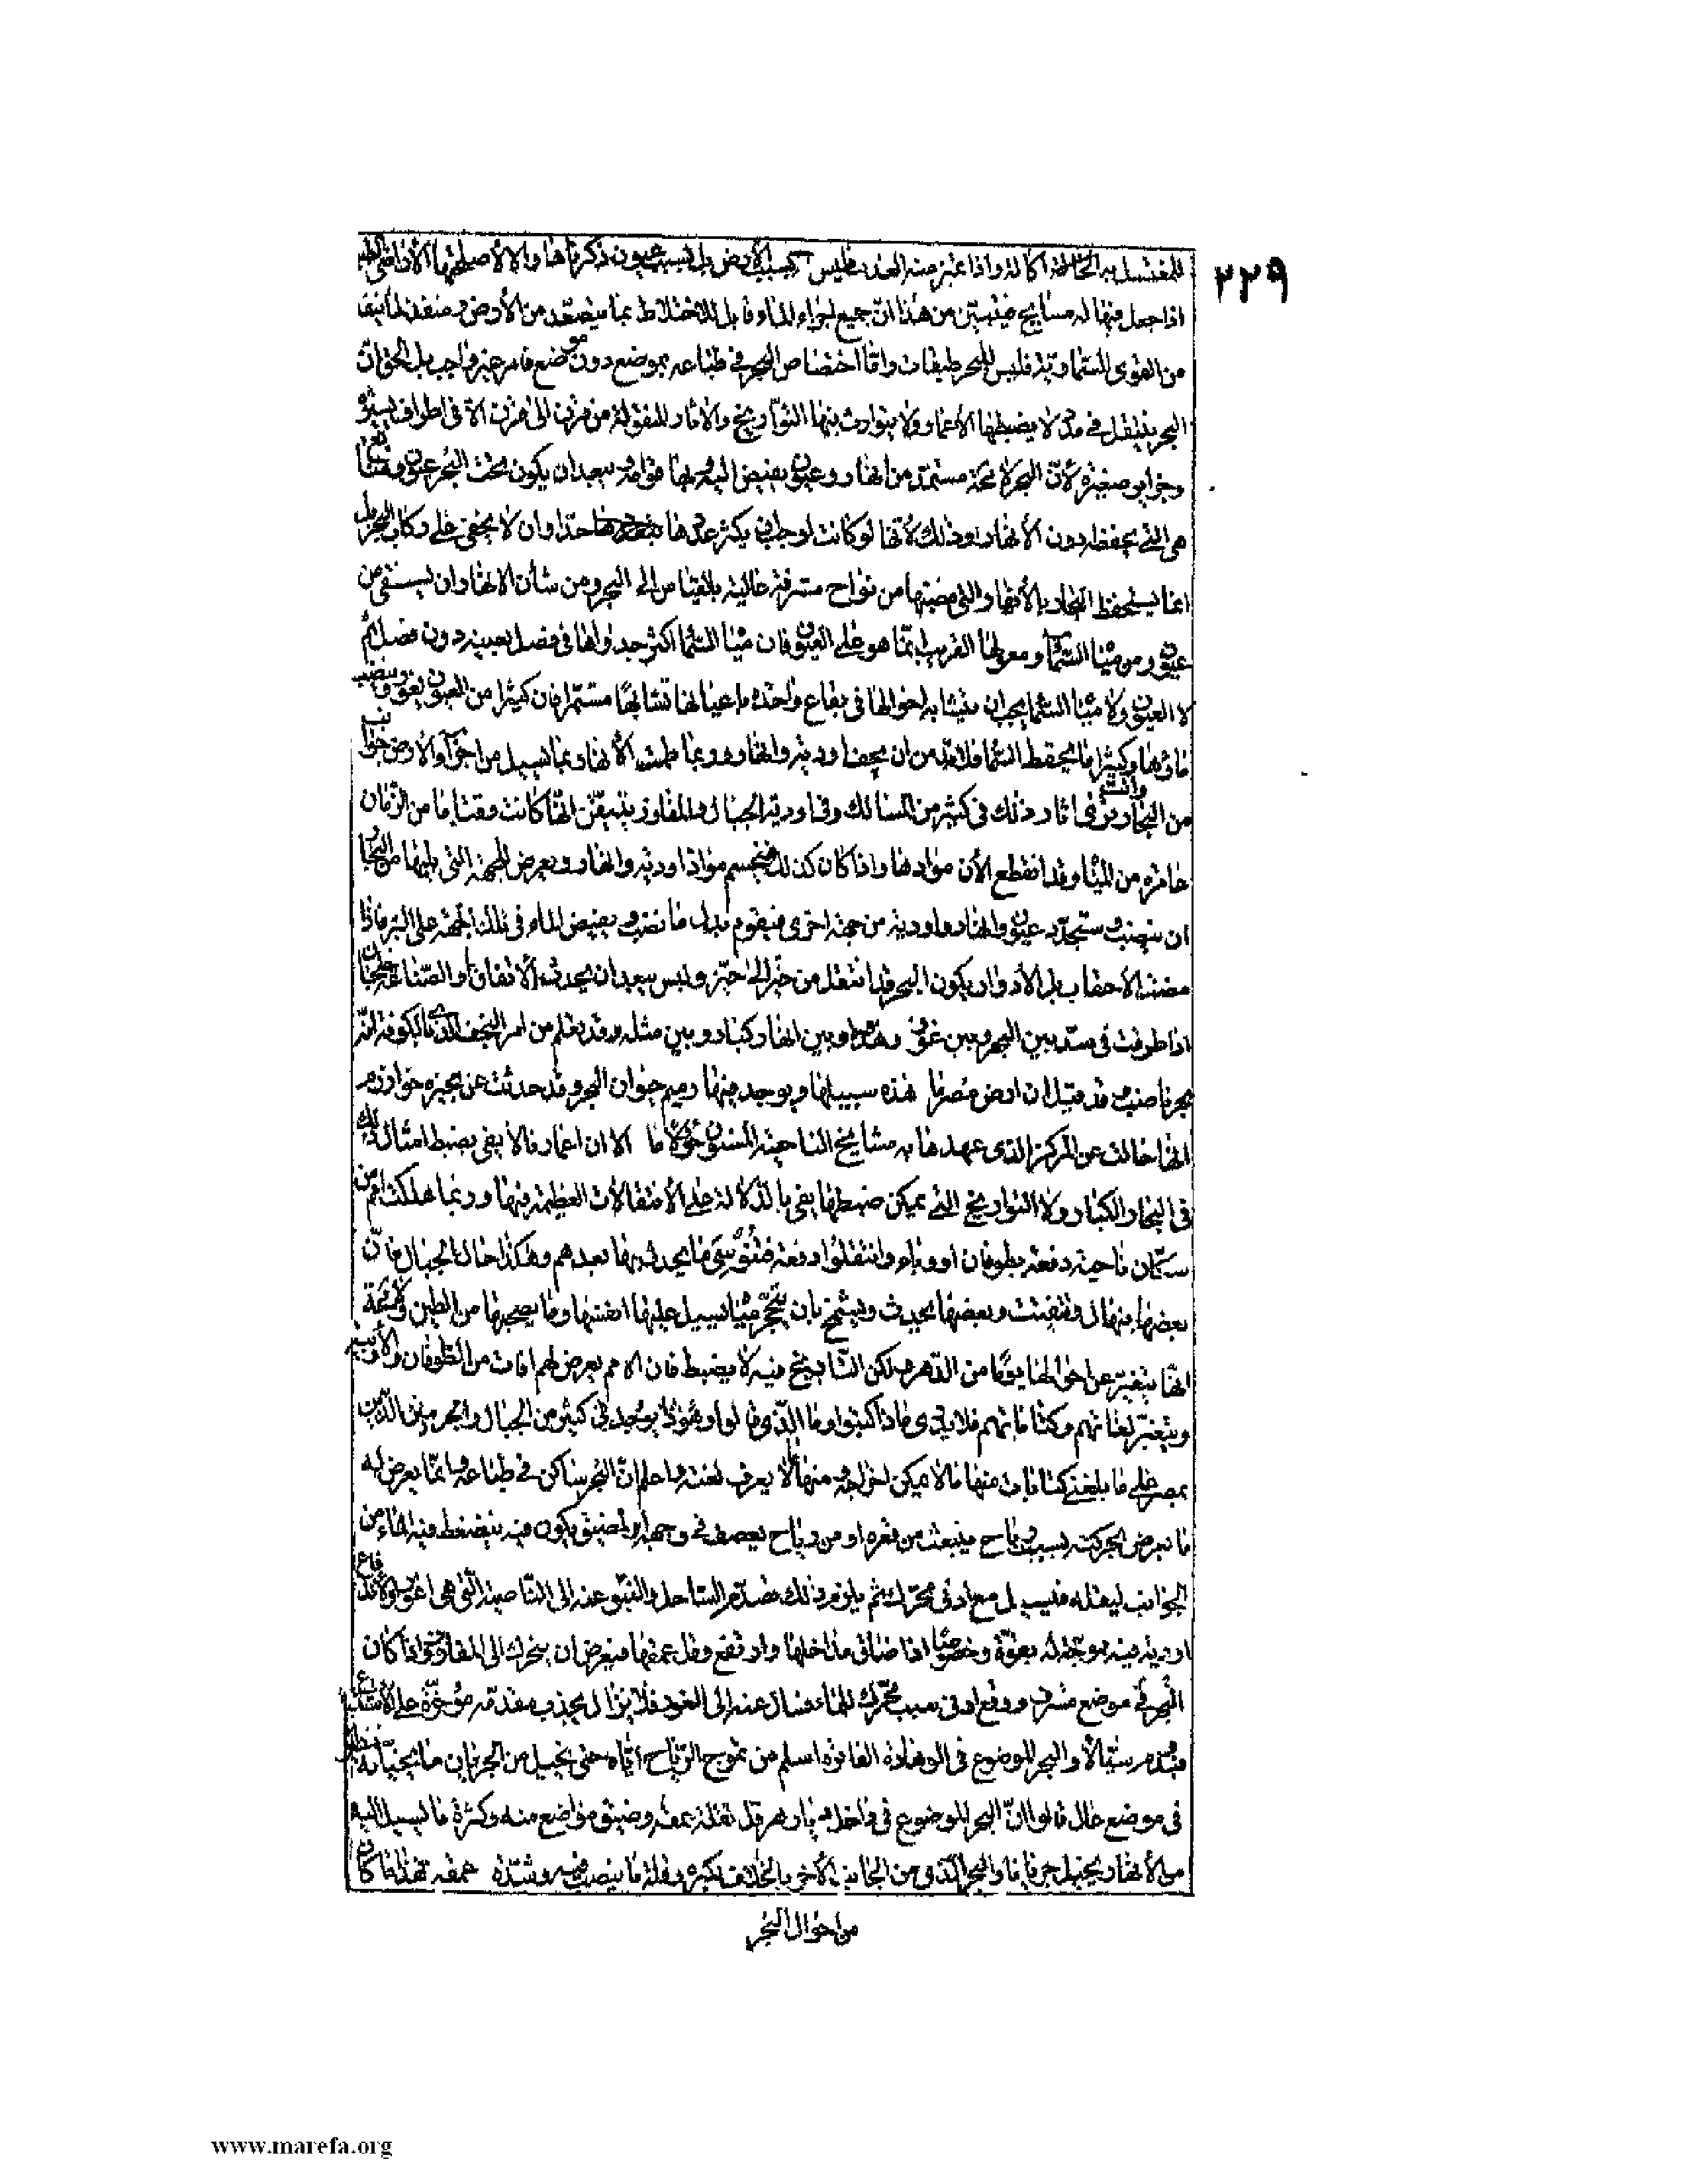 ٢٣٩
للمغتسل به الحالة اكالة واذا عبر منه العذب فليس بسبب الأرض بل بسبب عيون ذكرناها والا لاصلحتها الأراضي
اذا جعل فيها له مسايح فيتبين من هذا ان جميع اجزاء الماء قابل للاختلاط بما يتصعد من الأرض ومنفعل لما فيه
من القوى السماوية فليس للبحر طبقات واما اختصاص البحر في طباعه بموضع دون موضع فامر غير واجب بل الحق ان
البحر ينتقل في مدد لا يضبطها الأعمار ولا يتوارث بها التواريخ والاثار المنقولة من قرن الى قرن الا في اطراف يسيرة
وجزاير صغيرة لأن البحر لا محة مستمد من انهار وعيون يفيض اليه وبها قوامه ويبعد ان يكون تحت البحر عيون ومنابع
هي التي يحفظه دون الأنهار وذلك لأنها لو كانت لوجب ان يكثر عددها جدا وان لا يخفى على ركاب البحر بل
انما يستحفظ البحار بالأنهار والتي مصبها من نواح مشرفة عالية بالقياس الى البحر ومن شأن الانهار ان يستقى من
عيون ومن مياه السماء ومعولها القريب انما هو على العيون فان مياه السماء اكثر جدواها في فصل بعينه دون فصل ثم
لا العيون ولا مياه السماء يجب ان يتشابه احوالها في بقاع واحدة باعيانها تشابها مستمرا فان كثيرا من العيون يغور وينضب
ماؤها وكثيرا ما يحقط السماء فلا بد من ان يجف اودية وانهار وربما طمت الأنهار بما يسيل من اجزاء الارض جوانب
من البحار ويرى اثار ذلك في كثير من المسالك وفي اودية الجبال والمفاوز يتيقن انها كانت وقتا ما من الزمان
غامرة من المياه وقد انقطع الأن موادها واذا كان كذلك فيحسم مواد اودية وانهار ويعرض للجهة التي يليها من البحار
ان ينضب وستجد عيون وانهار واودية من جهة اخرى فيقوم بدل ما نضب ويفيض الماء في تلك الجهة على البر فاذا
مضت الأحقاب بل الأدوار يكون البحر قد انتقل من حيز الى حيز وليس يبعد ان يحدث الأتفاق او الصناعة خلجانا
اذا طرقت في سد بين البحر وبين غور وهدم او بين انهار كبار وبين مثله وقد يعلم من امر النجف الذي بالكوفة انه
بحر ناضب وقد قيل ان ارض مصر هذه سبيلها ويوجد فيها رميم حيوان البحر وقد حدثت عن بحيرة خوارزم
انها حالت عن المركز الذي عهدها به مشايخ الناحية المسنون حؤلا ما الا ان اعمارنا لا يفي بضبط امثال ذلك
في البحار الكبار ولا التواريخ التي يمكن ضبطها يفي بالدلالة على الأنتقالات العظيمة فيها وربما هلكت امم من
سكان ناحية دفعة بطوفان او وباء وانتقلوا دفعة فتنوسي ما يحدث بها بعدهم وهكذا حال الجبال فان
بعضها ينهال وتتفتت وبعضها يحدث ويشمخ بان يتحجر مياه يسيل عليها انفسها وما يصحبها من الطين ولا محة
انها يتغير عن احوالها يوما من الدهر ولكن التاريخ فيه لا يضبط فان الامم يعرض لهم افات من الطوفان والأوبية
ويتغير لغاتهم وكتاباتهم فلا يدرى ماذا كتبوا وما الذي قالوا وهو ذا يوجد في كثير من الجبال
بمصر على ما بلغني كتابات منها ما لا يمكن اخراجه ومنها ما لا يعرف لغته واعلم ان البحر ساكن في طباعه وانما يعرض له
ما يعرض الحركة بسبب رياح ينبعث من قعره او من رياح يعصف في وجهه او لمضيق يكون فيه ينضغط فيه الماء من
الجوانب لثقله فيسيل مع ادنى تحرك ثم يلزم ذلك صدم الساحل والنبو عنه الى الناصية التي هي اغور ولاندفاع
اودية فيه موجة له بقوة وخصوصا اذا ضاق مداخلها وارتفع وقل عمقها فيعرض ان يتحرك الى المغاور واذا كان
البحر في موضع مشرف ووقع ادنى سبب محرك للماء فسال عنه الى الغور فلا يزال يجذب مقدمه مؤخره على الأستتباع
فيدوم سيالا والبحر الموضوع في الوهادة الغائرة اسلم من تموج الرياح اياه حتى يخيل من الجريان ما يخيله
في موضع عال قالوا ان البحر الموضوع في داخل قل لقلة عمقه وضيق مواضع منه وكثرة ما يسيل اليه
من الأنهار يخيل جريانا والبحر الذي من الجانب الأخر بالخلاف لكبره وقلة ما ينصب فيه وشدة عمقه فهذا ما كان
من احوال البحر
www.marefa.org